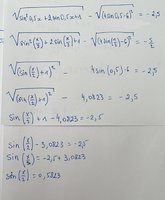 √(sin² 0,5x + 2 sin 0,5x + 1) - √(4 sin 0,5 - 6)² = -2,5
√(sin²(x/2) + 2 sin(x/2) + 1) - √(4 sin(x/2) - 6)² = -5/2
√(sin(x/2) + 1)² - 4 sin(0,5) - 6 = -2,5
√(sin(x/2) + 1)² - 4,0823 = -2,5
sin(x/2) + 1 - 4,0823 = -2,5
sin(x/2) - 3,0823 = -2,5
sin(x/2) = -2,5 + 3,0823
sin(x/2) = 0,5823